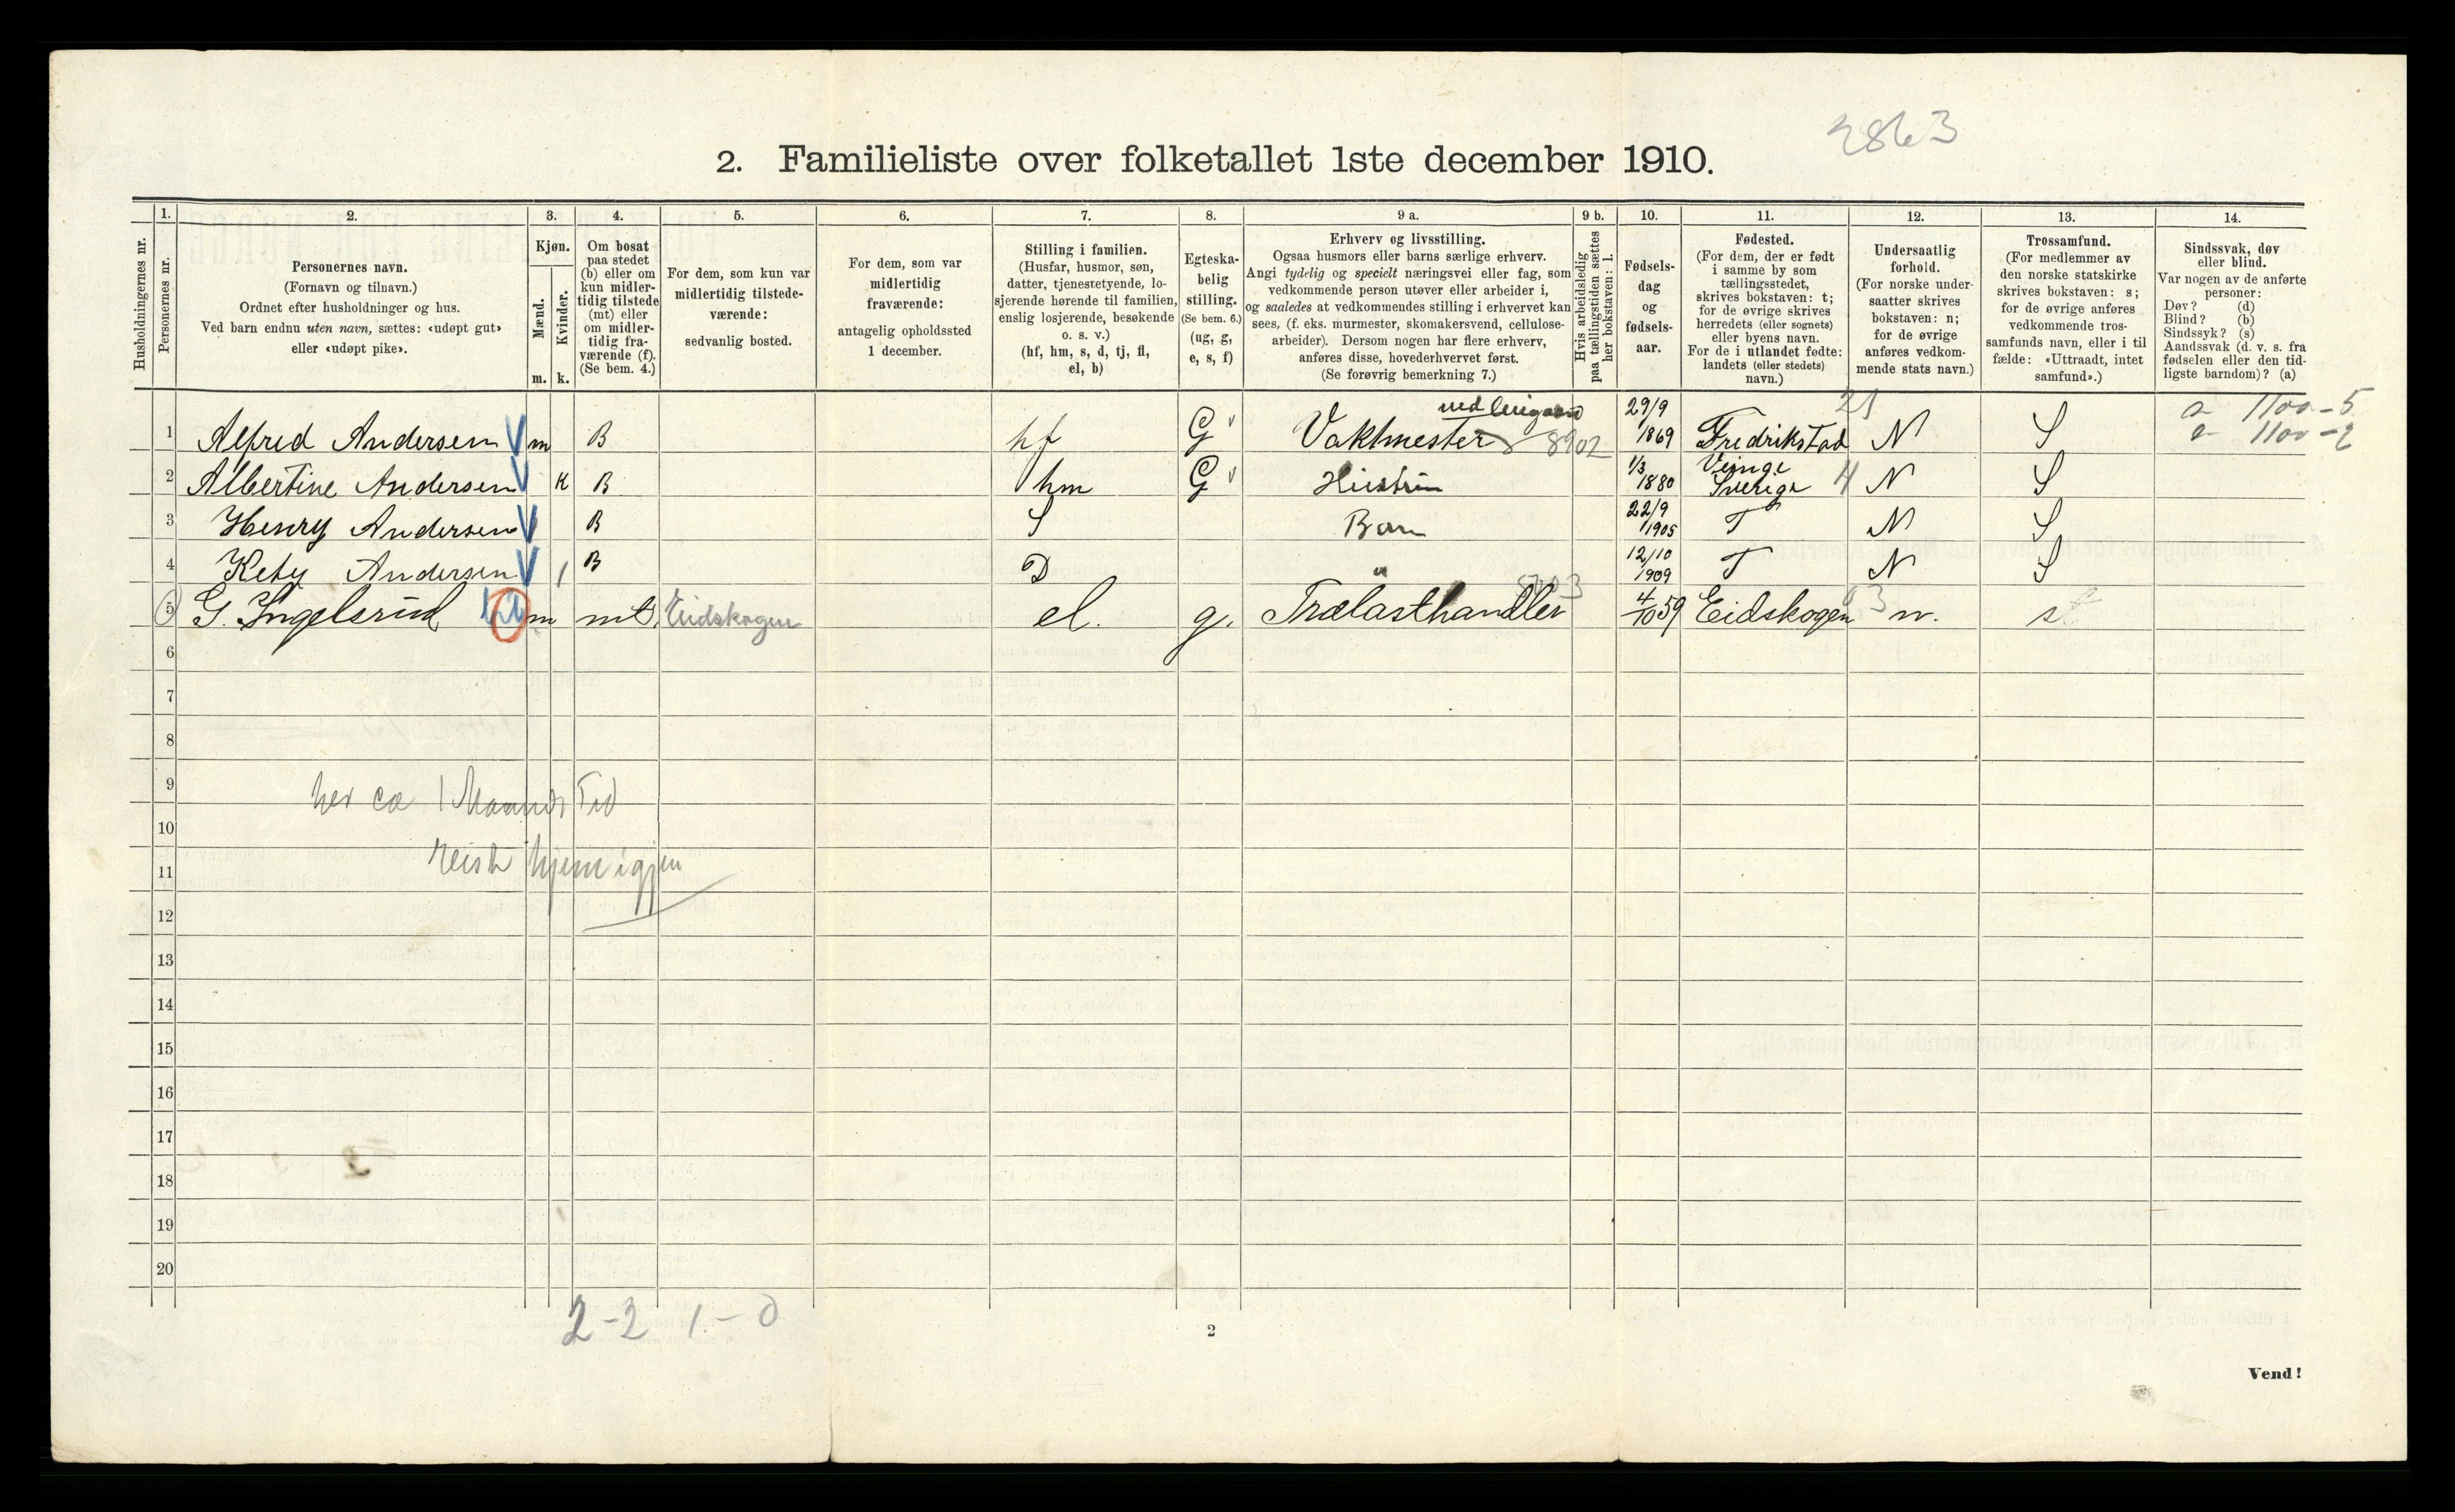 2863
2. Familieliste over folketallet 1ste december 1910.
Husholdningernes nr.
1.
Personernes nr.
2.
Personernes navn.
(Fornavn og tilnavn.)
Ordnet efter husholdninger og hus.
Ved barn endnu uten navn, sættes: «udøpt gut»
eller «udøpt pike».
3.
Kjøn.
Mænd.
Kvinder.
m. k.
4.
Om bosat
paa stedet
(b) eller om
kun midler-
tidig tilstede
(mt) eller
om midler-
tidig fra-
værende (f).
(Se bem. 4.)
5.
For dem, som kun var
midlertidig tilstede-
værende:
sedvanlig bosted.
6.
For dem, som var
midlertidig
fraværende:
antagelig opholdssted
1 december.
7.
Stilling i familien.
(Husfar, husmor, søn,
datter, tjenestetyende, lo-
sjerende hørende til familien,
enslig losjerende, besøkende
o. s. v.)
(hf, hm, s, d, tj, fl,
el, b)
8.
Egteska-
belig
stilling.
(Se bem. 6.)
(ug, g,
e, s, f)
9 a.
Erhverv og livsstilling.
Ogsaa husmors eller barns særlige erhverv.
Angi tydelig og specielt næringsvei eller fag, som
vedkommende person utøver eller arbeider i,
og saaledes at vedkommendes stilling i erhvervet kan
sees, (f. eks. murmester, skomakersvend, cellulose-
arbeider). Dersom nogen har flere erhverv,
anføres disse, hovederhvervet først.
(Se forøvrig bemerkning 7.)
9 b.
Hvis arbeidsledig
paa tællingstiden sættes
her bokstaven: l.
10.
Fødsels-
dag
og
fødsels-
aar.
11.
Fødested.
(For dem, der er født
i samme by som
tællingsstedet,
skrives bokstaven: t;
for de øvrige skrives
herredets (eller sognets)
eller byens navn.
For de i utlandet fødte:
landets (eller stedets)
navn.)
12.
Undersaatlig
forhold.
(For norske under-
saatter skrives
bokstaven: n;
for de øvrige
anføres vedkom-
mende stats navn.)
13.
Trossamfund.
(For medlemmer av
den norske statskirke
skrives bokstaven: s;
for de øvrige anføres
vedkommende tros-
samfunds navn, eller i til
fælde: «Uttraadt, intet
samfund».)
14.
Sindssvak, døv
eller blind.
Var nogen av de anførte
personer:
Døv? (d)
Blind? (b)
Sindssyk? (s)
Aandssvak (d. v. s. fra
fødselen eller den tid-
ligste barndom)? (a)
a 1100-5
a 1100-2
1 Alfred Andersen m B hf G Vaktmester 8902 29/9 1869 Fredrikstad N S
2 Albertine Andersen K B hm G Hustru 1/3 1880 Veinge Sverige N S
3 Henry Andersen B S Barn 22/9 1905 T N S
4 Kety Andersen 1 B D " 12/10 1909 T N S
5 G. Ingelsrud m mt. Eidskogen el. g. Trælasthandler 4/10 59 Eidskogen n. s
6
7
8
9 her ca 1 Maaneds Tid
10
11 reist hjem igjen
12
13
14
15
16
17
18
19
20
2-2 1-0
2
Vend!